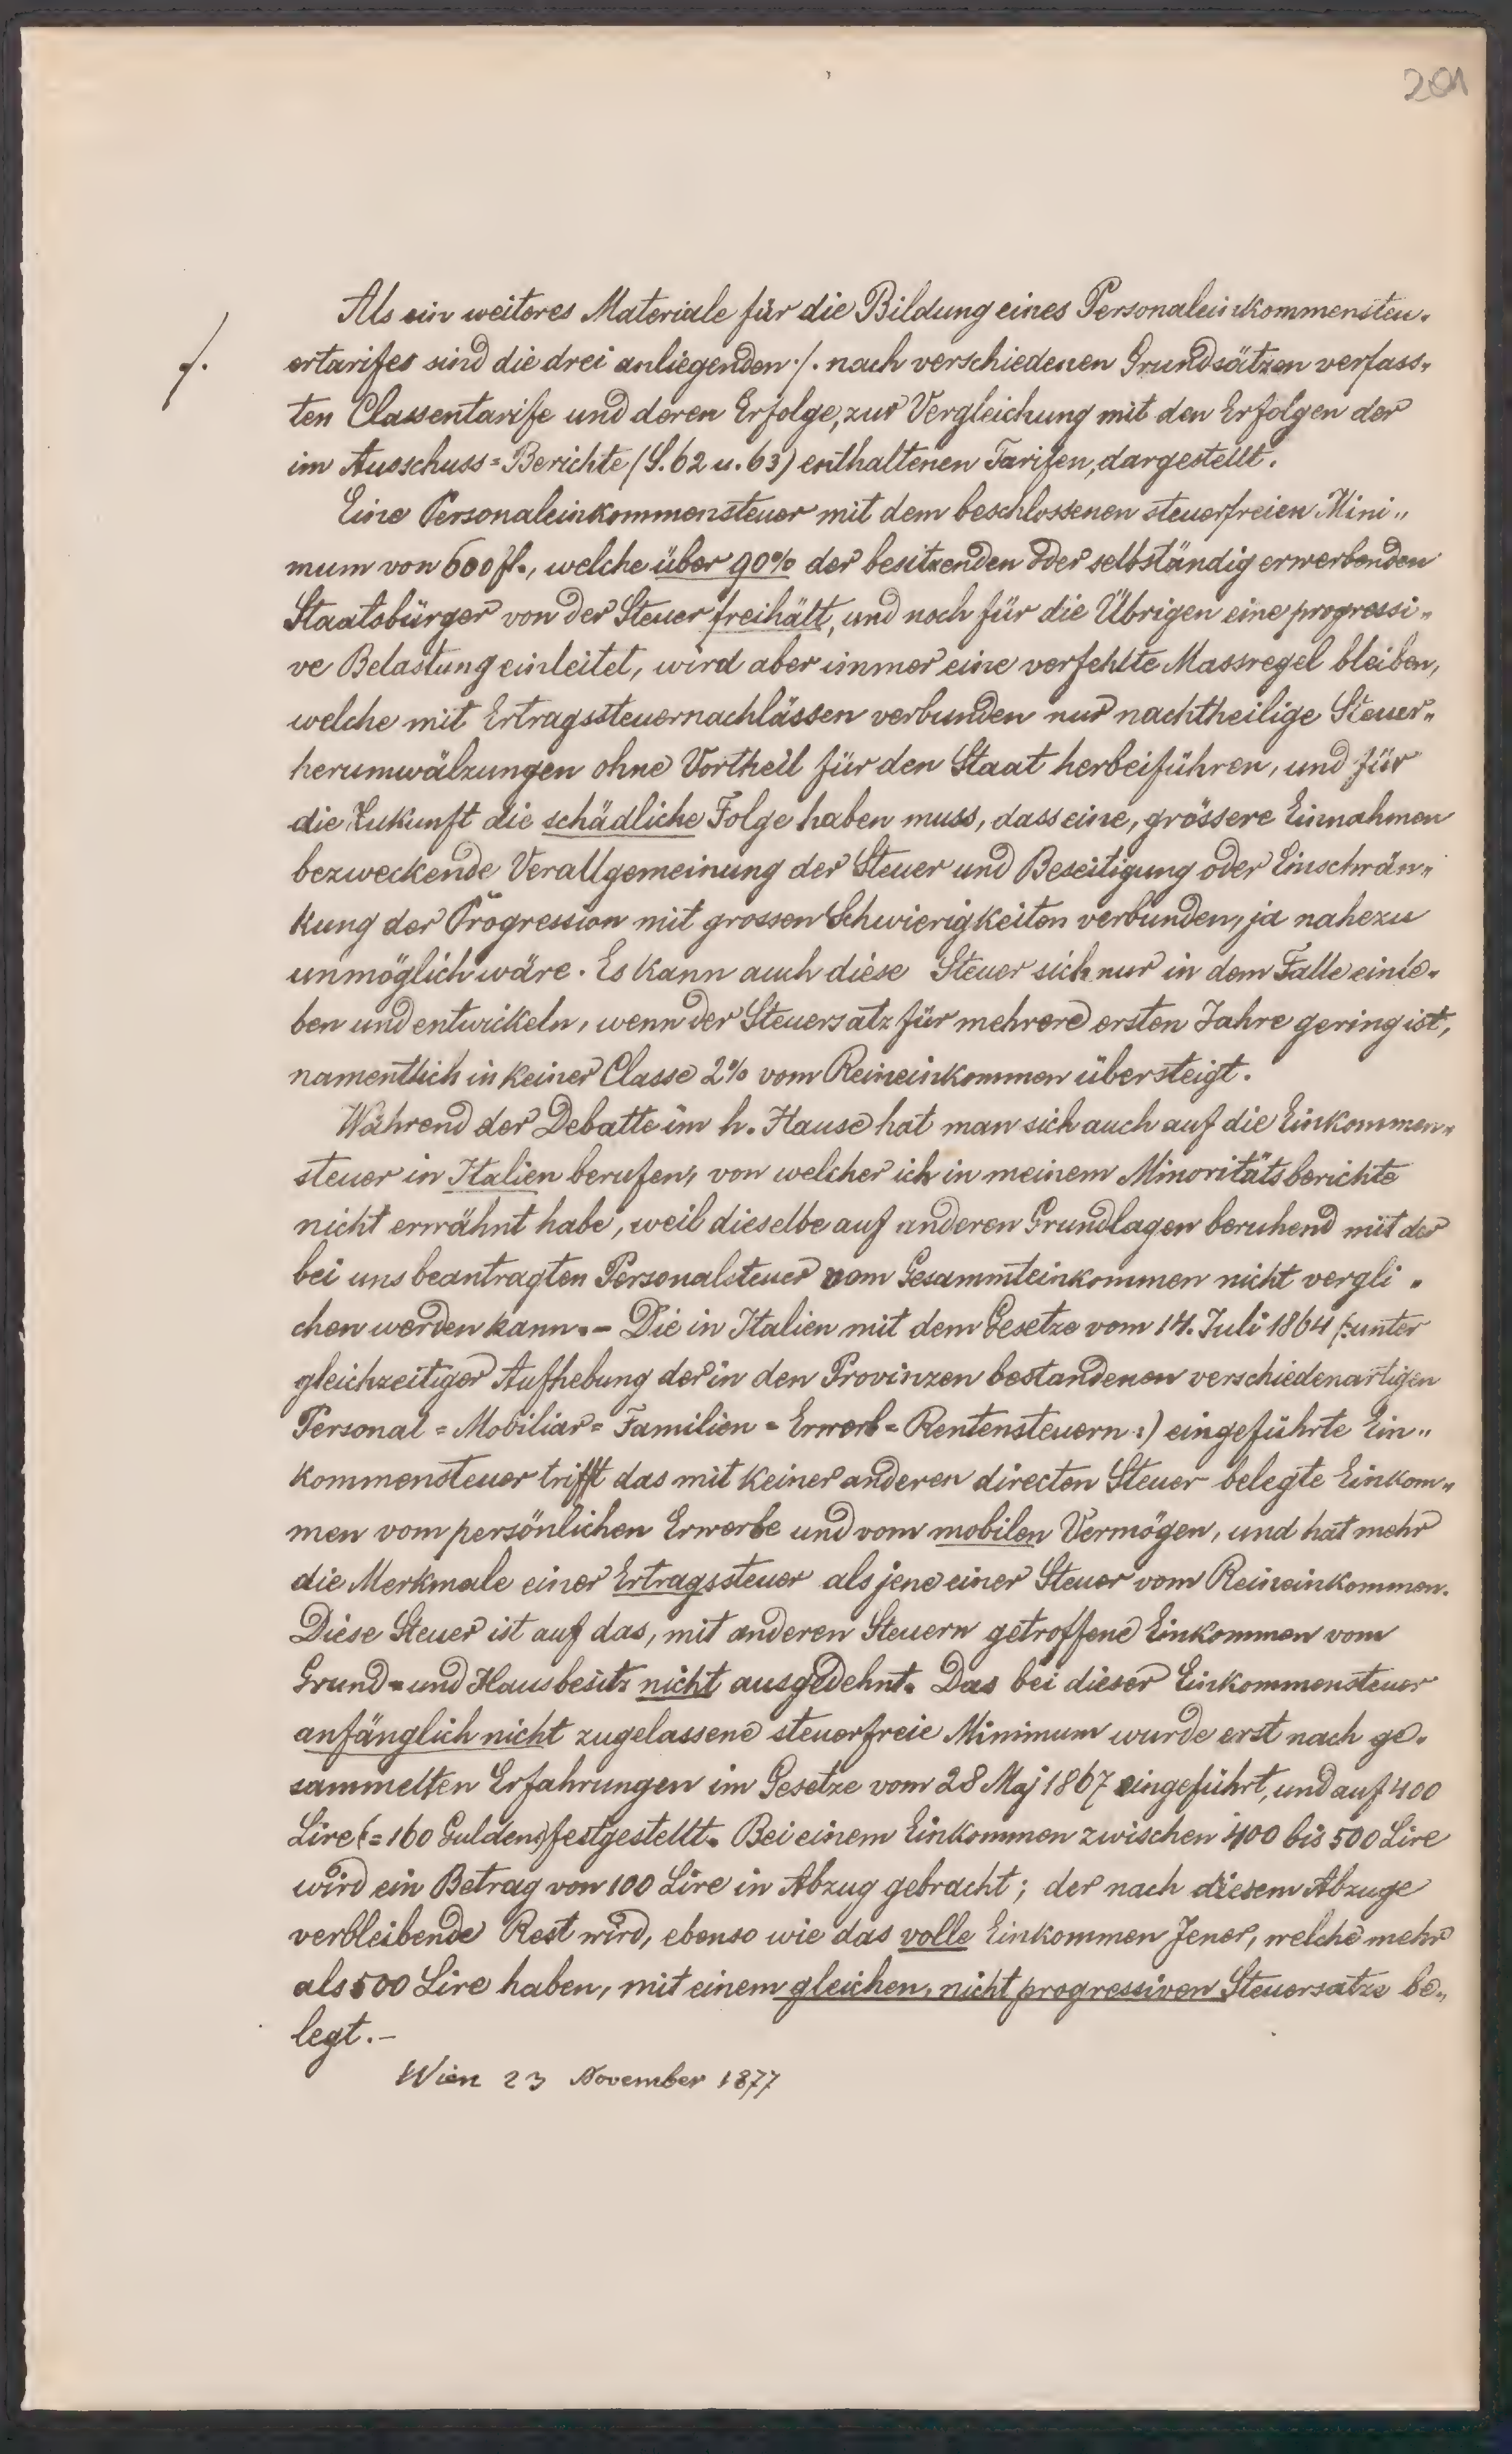 201
Als ein weiteres Materiale für die Bildung eines Personaleinkommensteu-
ertarifes sind die drei anliegenden ./. nach verschiedenen Grundsätzen verfass-
./.
ten Classentarife und deren Erfolge, zur Vergleichung mit den Erfolgen der
im Ausschuss=Berichte (S. 62 u. 63) enthaltenen Tarifen, dargestellt.
Eine Personaleinkommensteuer mit dem beschlossenen steuerfreien Mini„
mum von 600 fl., welche über 90% der besitzenden oder selbständig erwerbenden
Staatsbürger von der Steuer freihält, und noch für die Übrigen eine progressi„
ve Belastung einleitet, wird aber immer eine verfehlte Massregel bleiben,
welche mit Ertragssteuernachlässen verbunden nur nachtheilige Steuer„
herumwälzungen ohne Vortheil für den Staat herbeiführen, und für
die Zukunft die schädliche Folge haben muss, dass eine, grössere Einnahmen
bezweckende Verallgemeinung der Steuer und Beseitigung oder Einschrän„
kung der Progression mit grossen Schwierigkeiten verbunden, ja nahezu
unmöglich wäre. Es kann auch diese Steuer sich nur in dem Falle einle-
ben und entwickeln, wenn der Steuersatz für mehrere ersten Jahre gering ist,
namentlich in keiner Classe 2% vom Reineinkommen übersteigt.
Während der Debatte im h. Hause hat man sich auch auf die Einkommen„
steuer in Italien berufen, von welcher ich in meinem Minoritätsberichte
nicht erwähnt habe, weil dieselbe auf anderen Grundlagen beruhend mit der
bei uns beantragten Personalsteuer vom Gesammteinkommen nicht vergli-
chen werden kann.- Die in Italien mit dem Gesetze vom 14. Juli 1864 (:unter
gleichzeitiger Aufhebung der in den Provinzen bestandenen verschiedenartigen
Personal = Mobiliar = Familien = Erwerb = Rentensteuern :) eingeführte Ein„
kommensteuer trifft das mit keiner anderen directen Steuer belegte Einkom„
men vom persönlichen Erwerbe und vom mobilen Vermögen, und hat mehr
die Merkmale einer Ertragssteuer als jene einer Steuer vom Reineinkommen.
Diese Steuer ist auf das, mit anderen Steuern getroffene Einkommen vom
Grund= und Hausbesitz nicht ausgedehnt. Das bei dieser Einkommensteuer
anfänglich nicht zugelassene steuerfreie Minimum wurde erst nach ge-
sammelten Erfahrungen im Gesetze vom 28 Maj 1867 eingeführt, und auf 400
Lire (= 160 Gulden) festgestellt. Bei einem Einkommen zwischen 400 bis 500 Lire
wird ein Betrag von 100 Lire in Abzug gebracht; der nach diesem Abzuge
verbleibende Rest wird, ebenso wie das volle Einkommen Jener, welche mehr
als 500 Lire haben, mit einem gleichen, nicht progressiven Steuersatze be„
legt.-
Wien 23 November 1877